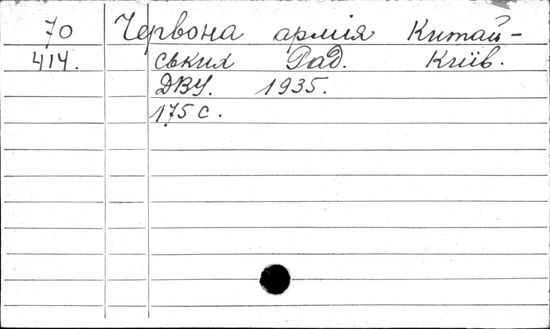 70 Червона армія Китай-
414. ських Рад. Київ.
ДВУ. 1935.
175 с.